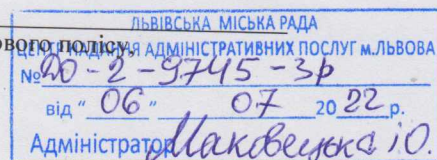 ЛЬВІВСЬКА МІСЬКА РАДА
ового полісу,
ЦЕНТР НАДАННЯ АДМІНІСТРАТИВНИХ ПОСЛУГ м.ЛЬВОВА
№ 20-2-9745-Зр
від "06" 07 2022 р.
Адміністратор Маковецька і.О.